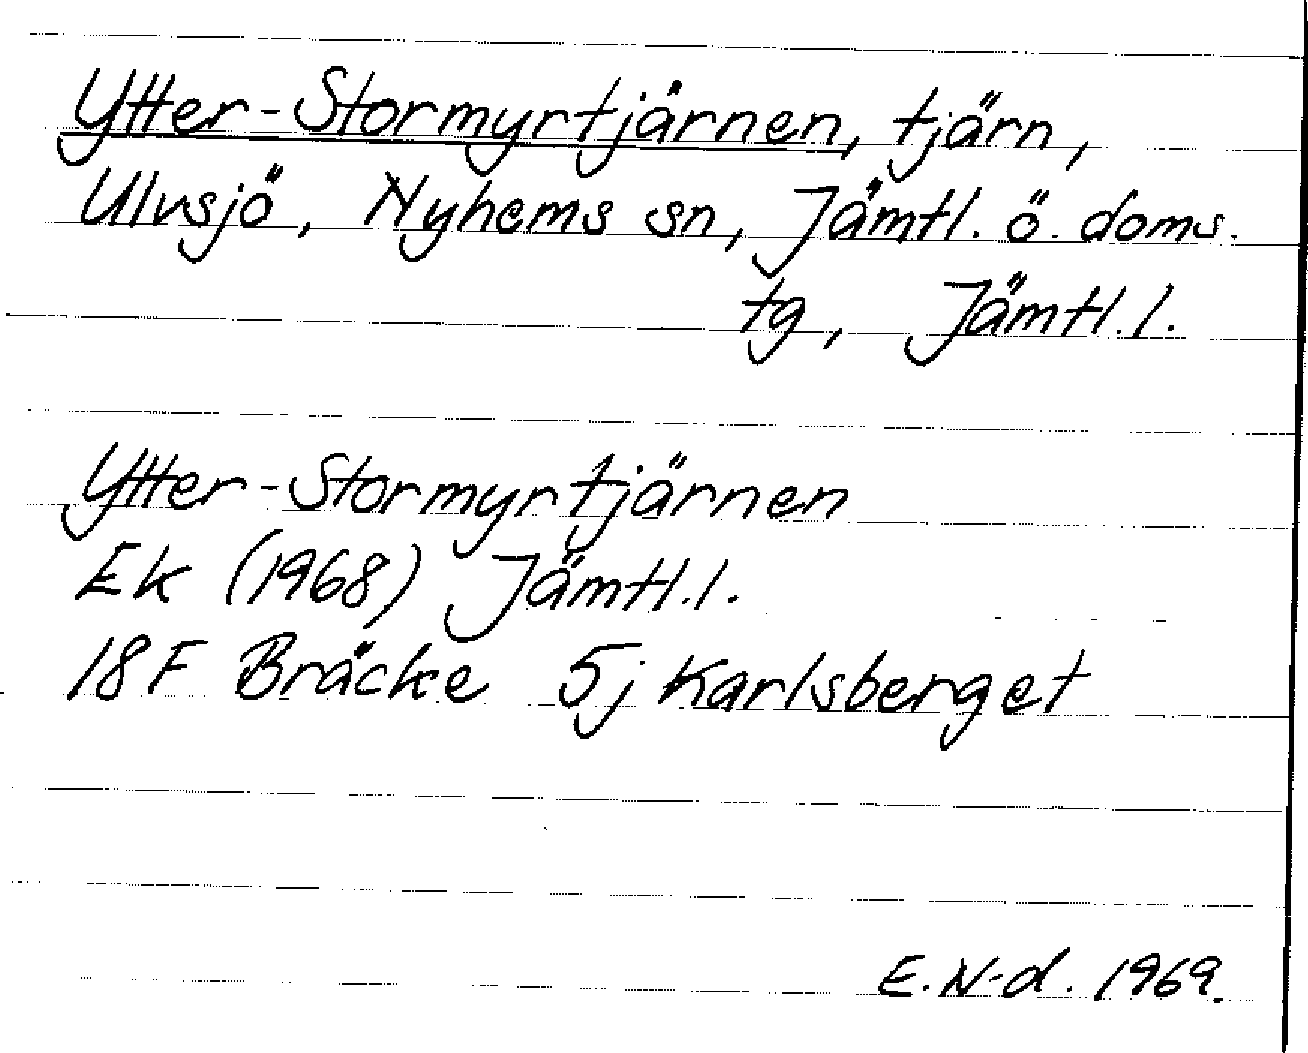 Ytter-Stormyrtjärnen, tjärn,
Ulvsjö, Nyhems sn, Jämtl. ö. doms.
tg, Jämtl. l.
Ytter-Stormyrtjärnen
Ek (1968) Jämtl. l.
18F Bräcke 5j Karlsberget
E. N-d. 1969.